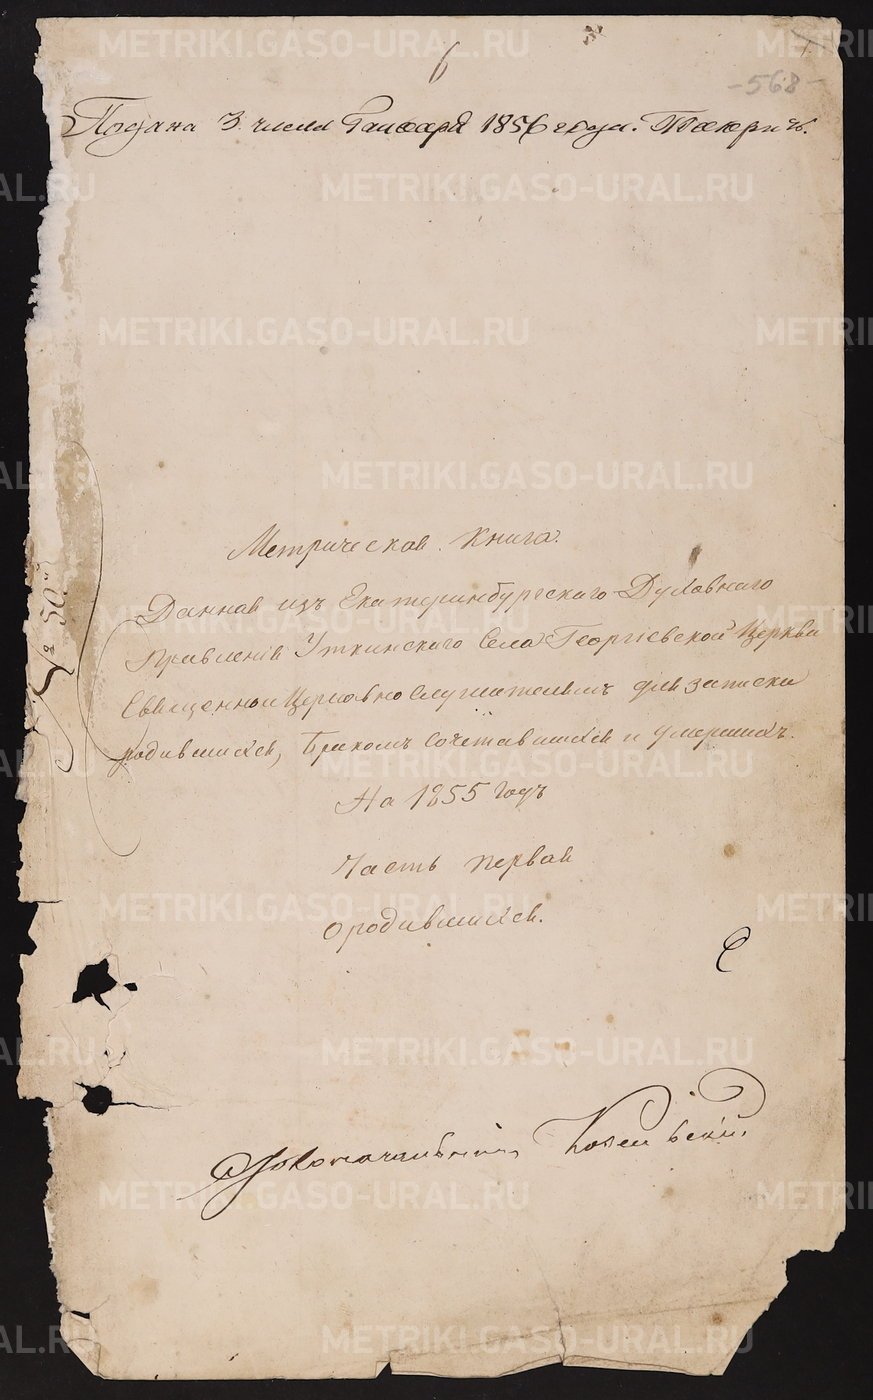 6
-568-
Подана 3 числа Генваря 1856 года.
Метрическая Книга.
Данная изъ Екатеринбургскаго Духовнаго
Правленія Уткинскаго Села Георгіевской Церкви
Священно и Церковнослужителямъ для записки
родившихся, бракомъ сочетавшихся и умершихъ.
На 1855 годъ
Часть первая
о родившихся.
№ 50й
Столоначальникъ
METRIKI.GASO-URAL.RU